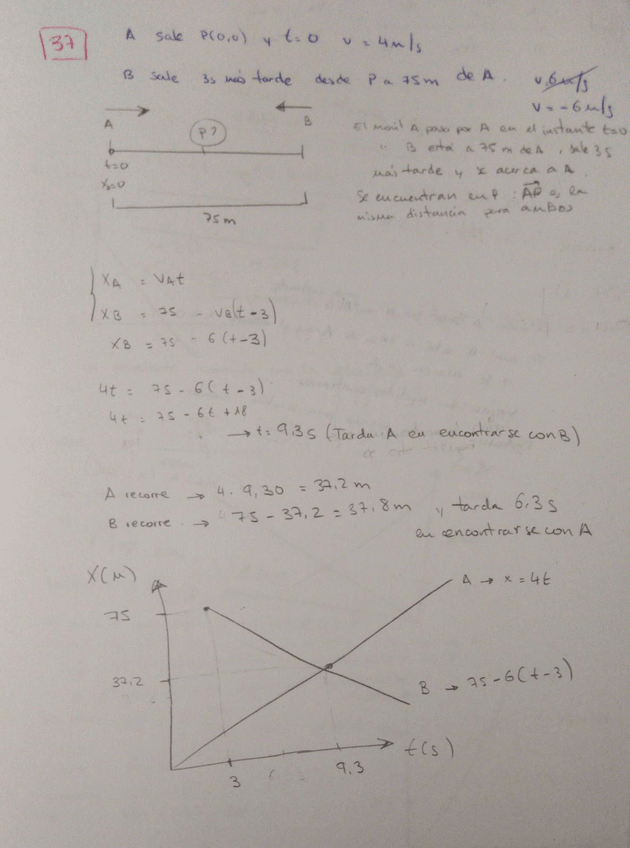 37
A sale P(0,0) y t=0 v = 4m/s
B sale 3s más tarde desde P a 75m de A. v 6m/s
v = -6 m/s
A P? B
t=0
x=0
75m
El movil A pasa por A en el instante t=0
" B está a 75m de A, sale 3s
más tarde y x acerca a A.
Se encuentran en P: AP es la
misma distancia para ambos
XA = VAt
XB = 75 - VB(t-3)
XB = 75 - 6(t-3)
4t = 75 - 6(t-3)
4t = 75 - 6t + 18
→ t = 9,3s (Tarda A en encontrarse con B)
A recorre → 4. 9,30 = 37,2m
B recorre → 75 - 37,2 = 37,8m y tarda 6,3s
en encontrarse con A
X(m)
A → x = 4t
75
37,2
B → 75-6(t-3)
t(s)
3
9,3